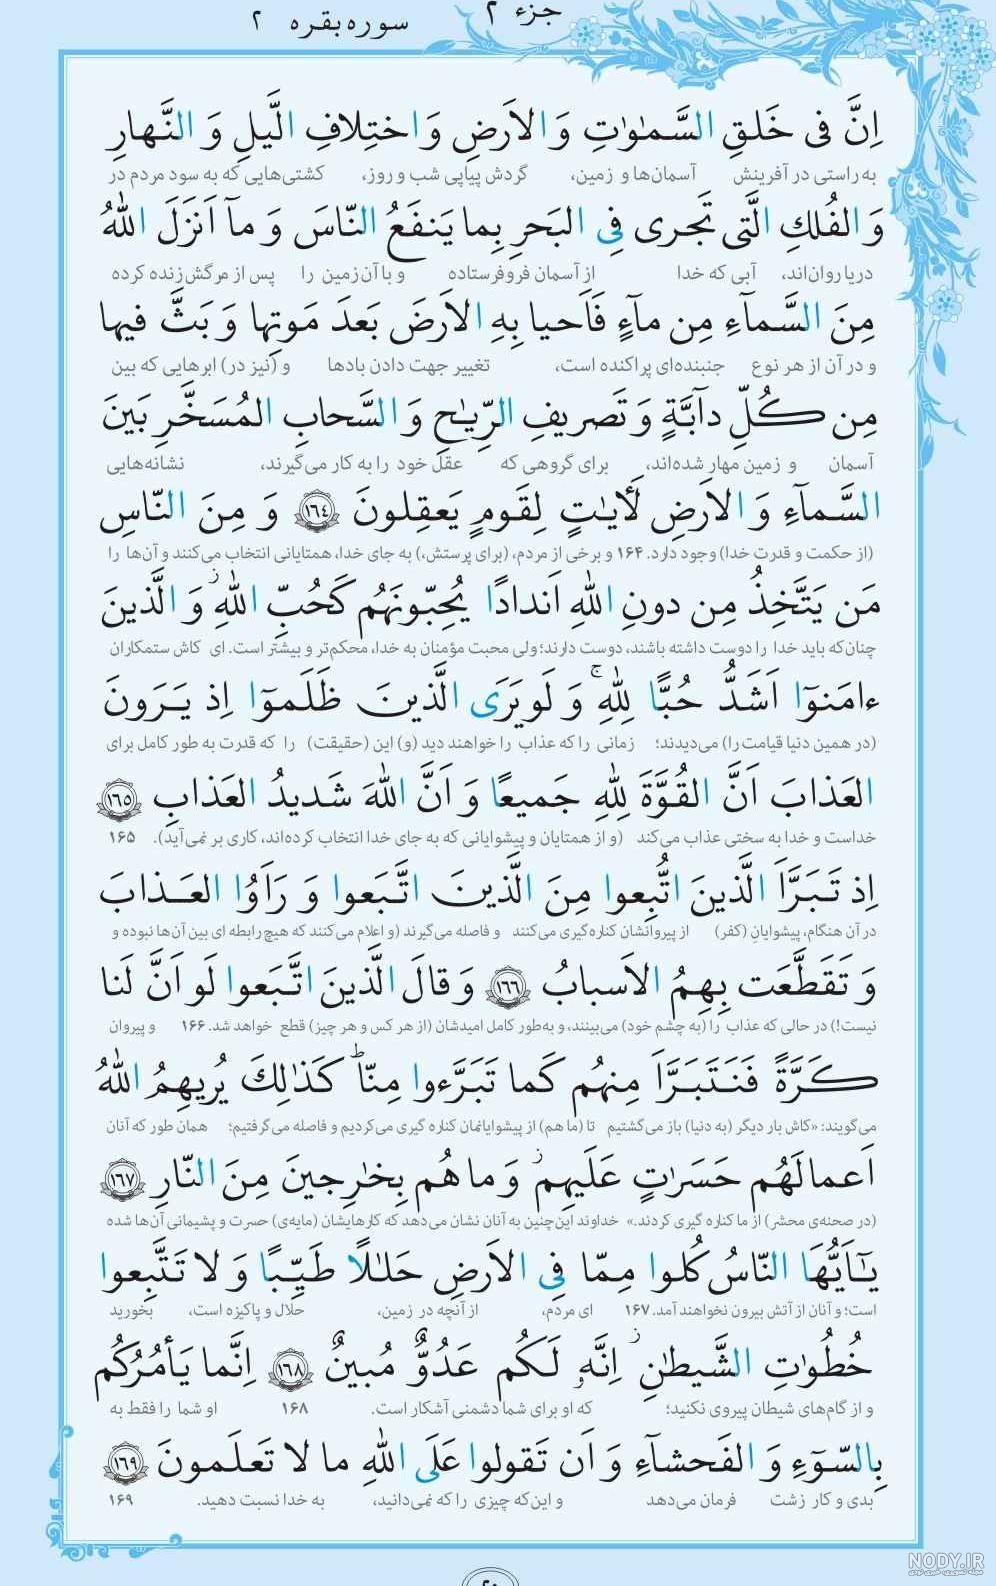 جزء ۲
سوره بقره ۲
اِنَّ فی خَلقِ السَّمٰوٰتِ وَ الاَرضِ وَ اختِلافِ الَّیلِ وَ النَّهارِ
به راستی در آفرینش آسمان‌ها و زمین، گردش پیاپی شب و روز، کشتی‌هایی که به سود مردم در
وَ الفُلکِ الَّتی تَجری فِی البَحرِ بِما یَنفَعُ النّاسَ وَ مآ اَنزَلَ اللهُ
دریا روان‌اند، آبی که خدا از آسمان فروفرستاده و با آن زمین را پس از مرگش زنده کرده
مِنَ السَّمآءِ مِن مآءٍ فَاَحیا بِهِ الاَرضَ بَعدَ مَوتِها وَ بَثَّ فیها
و در آن از هر نوع جنبنده‌ای پراکنده است، تغییر جهت دادن بادها و (نیز در) ابرهایی که بین
مِن کُلِّ دآبَّةٍ وَ تَصریفِ الرِّیٰحِ وَ السَّحابِ المُسَخَّرِ بَینَ
آسمان و زمین مهار شده‌اند، برای گروهی که عقل خود را به کار می‌گیرند، نشانه‌هایی
السَّمآءِ وَ الاَرضِ لَأیٰتٍ لِقَومٍ یَعقِلونَ ﴿١٦٤﴾ وَ مِنَ النّاسِ
(از حکمت و قدرت خدا) وجود دارد. ۱۶۴ و برخی از مردم، (برای پرستش،) به جای خدا، همتایانی انتخاب می‌کنند و آن‌ها را
مَن یَتَّخِذُ مِن دونِ اللهِ اَندادًا یُحِبّونَهُم کَحُبِّ اللهِ ز وَ الَّذینَ
چنان‌که باید خدا را دوست داشته باشند، دوست دارند؛ ولی محبت مؤمنان به خدا، محکم‌تر و بیشتر است. ای کاش ستمکاران
ءامَنوٓا اَشَدُّ حُبًّا لِلّهِ ج وَ لَو یَرَی الَّذینَ ظَلَموٓا اِذ یَرَونَ
(در همین دنیا قیامت را) می‌دیدند؛ زمانی را که عذاب را خواهند دید (و) این (حقیقت) را که قدرت به طور کامل برای
العَذابَ اَنَّ القُوَّةَ لِلّهِ جَمیعًا وَ اَنَّ اللهَ شَدیدُ العَذابِ ﴿١٦٥﴾
خداست و خدا به سختی عذاب می‌کند (و از همتایان و پیشوایانی که به جای خدا انتخاب کرده‌اند، کاری بر نمی‌آید). ۱۶۵
اِذ تَبَرَّاَ الَّذینَ اتُّبِعوا مِنَ الَّذینَ اتَّبَعوا وَ رَاَوُا العَذابَ
در آن هنگام، پیشوایانِ (کفر) از پیروانشان کناره‌گیری می‌کنند و فاصله می‌گیرند (و اعلام می‌کنند که هیچ رابطه ای بین آن‌ها نبوده و
وَ تَقَطَّعَت بِهِمُ الاَسبابُ ﴿١٦٦﴾ وَ قالَ الَّذینَ اتَّبَعوا لَو اَنَّ لَنا
نیست!) در حالی که عذاب را (به چشم خود) می‌بینند، و به‌طور کامل امیدشان (از هر کس و هر چیز) قطع خواهد شد. ۱۶۶ و پیروان
کَرَّةً فَنَتَبَرَّاَ مِنهُم کَما تَبَرَّءوا مِنّا کَذٰلِکَ یُریهِمُ اللهُ
می‌گویند: «کاش بار دیگر (به دنیا) باز می‌گشتیم تا (ما هم) از پیشوایانمان کناره گیری می‌کردیم و فاصله می‌گرفتیم؛ همان طور که آنان
اَعمالَهُم حَسَرٰتٍ عَلَیهِم ز وَ ما هُم بِخٰرِجینَ مِنَ النّارِ ﴿١٦٧﴾
(در صحنه‌ی محشر) از ما کناره گیری کردند.» خداوند این‌چنین به آنان نشان می‌دهد که کارهایشان (مایه‌ی) حسرت و پشیمانی آن‌ها شده
یٰٓاَیُّهَا النّاسُ کُلوا مِمّا فِی الاَرضِ حَلٰلًا طَیِّبًا وَ لا تَتَّبِعوا
است؛ و آنان از آتش بیرون نخواهند آمد. ۱۶۷ ای مردم، از آنچه در زمین، حلال و پاکیزه است، بخورید
خُطُوٰتِ الشَّیطٰنِ ز اِنَّهو لَکُم عَدُوٌّ مُبینٌ ﴿١٦٨﴾ اِنَّما یَأمُرُکُم
و از گام‌های شیطان پیروی نکنید؛ که او برای شما دشمنی آشکار است. ۱۶۸ او شما را فقط به
بِالسّوٓءِ وَ الفَحشآءِ وَ اَن تَقولوا عَلَی اللهِ ما لا تَعلَمونَ ﴿١٦٩﴾
بدی و کار زشت فرمان می‌دهد و این‌که چیزی را که نمی‌دانید، به خدا نسبت دهید. ۱۶۹
NODY.IR